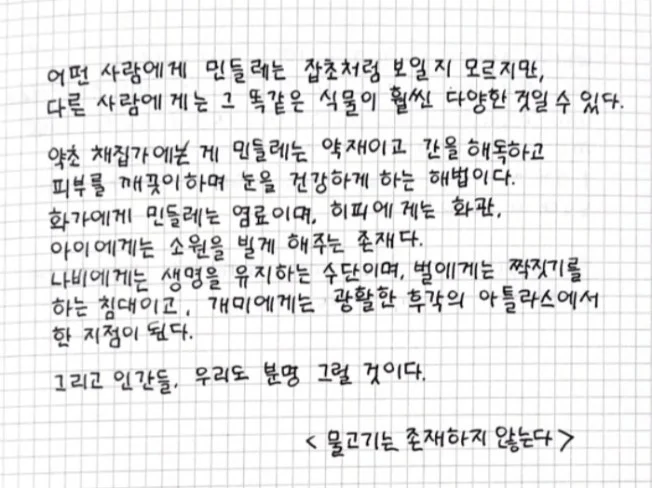 어떤 사람에게 민들레는 잡초처럼 보일지 모르지만,
다른 사람에게는 그 똑같은 식물이 훨씬 다양한 것일 수 있다.
약초 채집가에게 민들레는 약재이고 간을 해독하고
피부를 깨끗이하며 눈을 건강하게 하는 해법이다.
화가에게 민들레는 염료이며, 히피에게는 화관,
아이에게는 소원을 빌게 해주는 존재다.
나비에게는 생명을 유지하는 수단이며, 벌에게는 짝짓기를
하는 침대이고, 개미에게는 광활한 후각의 아틀라스에서
한 지점이 된다.
그리고 인간들, 우리도 분명 그럴 것이다.
<물고기는 존재하지 않는다>